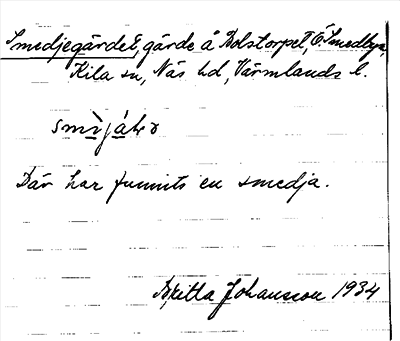 Smedjegärdet, gärde å Bolstorpet, Ö. Smedbyn,
Kila sn, Näs hd, Värmlands l.
Där har funnits en smedja.
Britta Johansson 1934